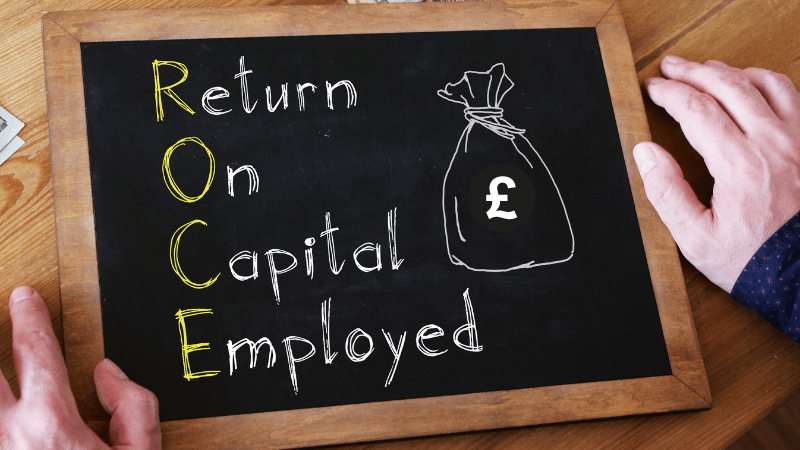 Return
On
Capital
Employed
£